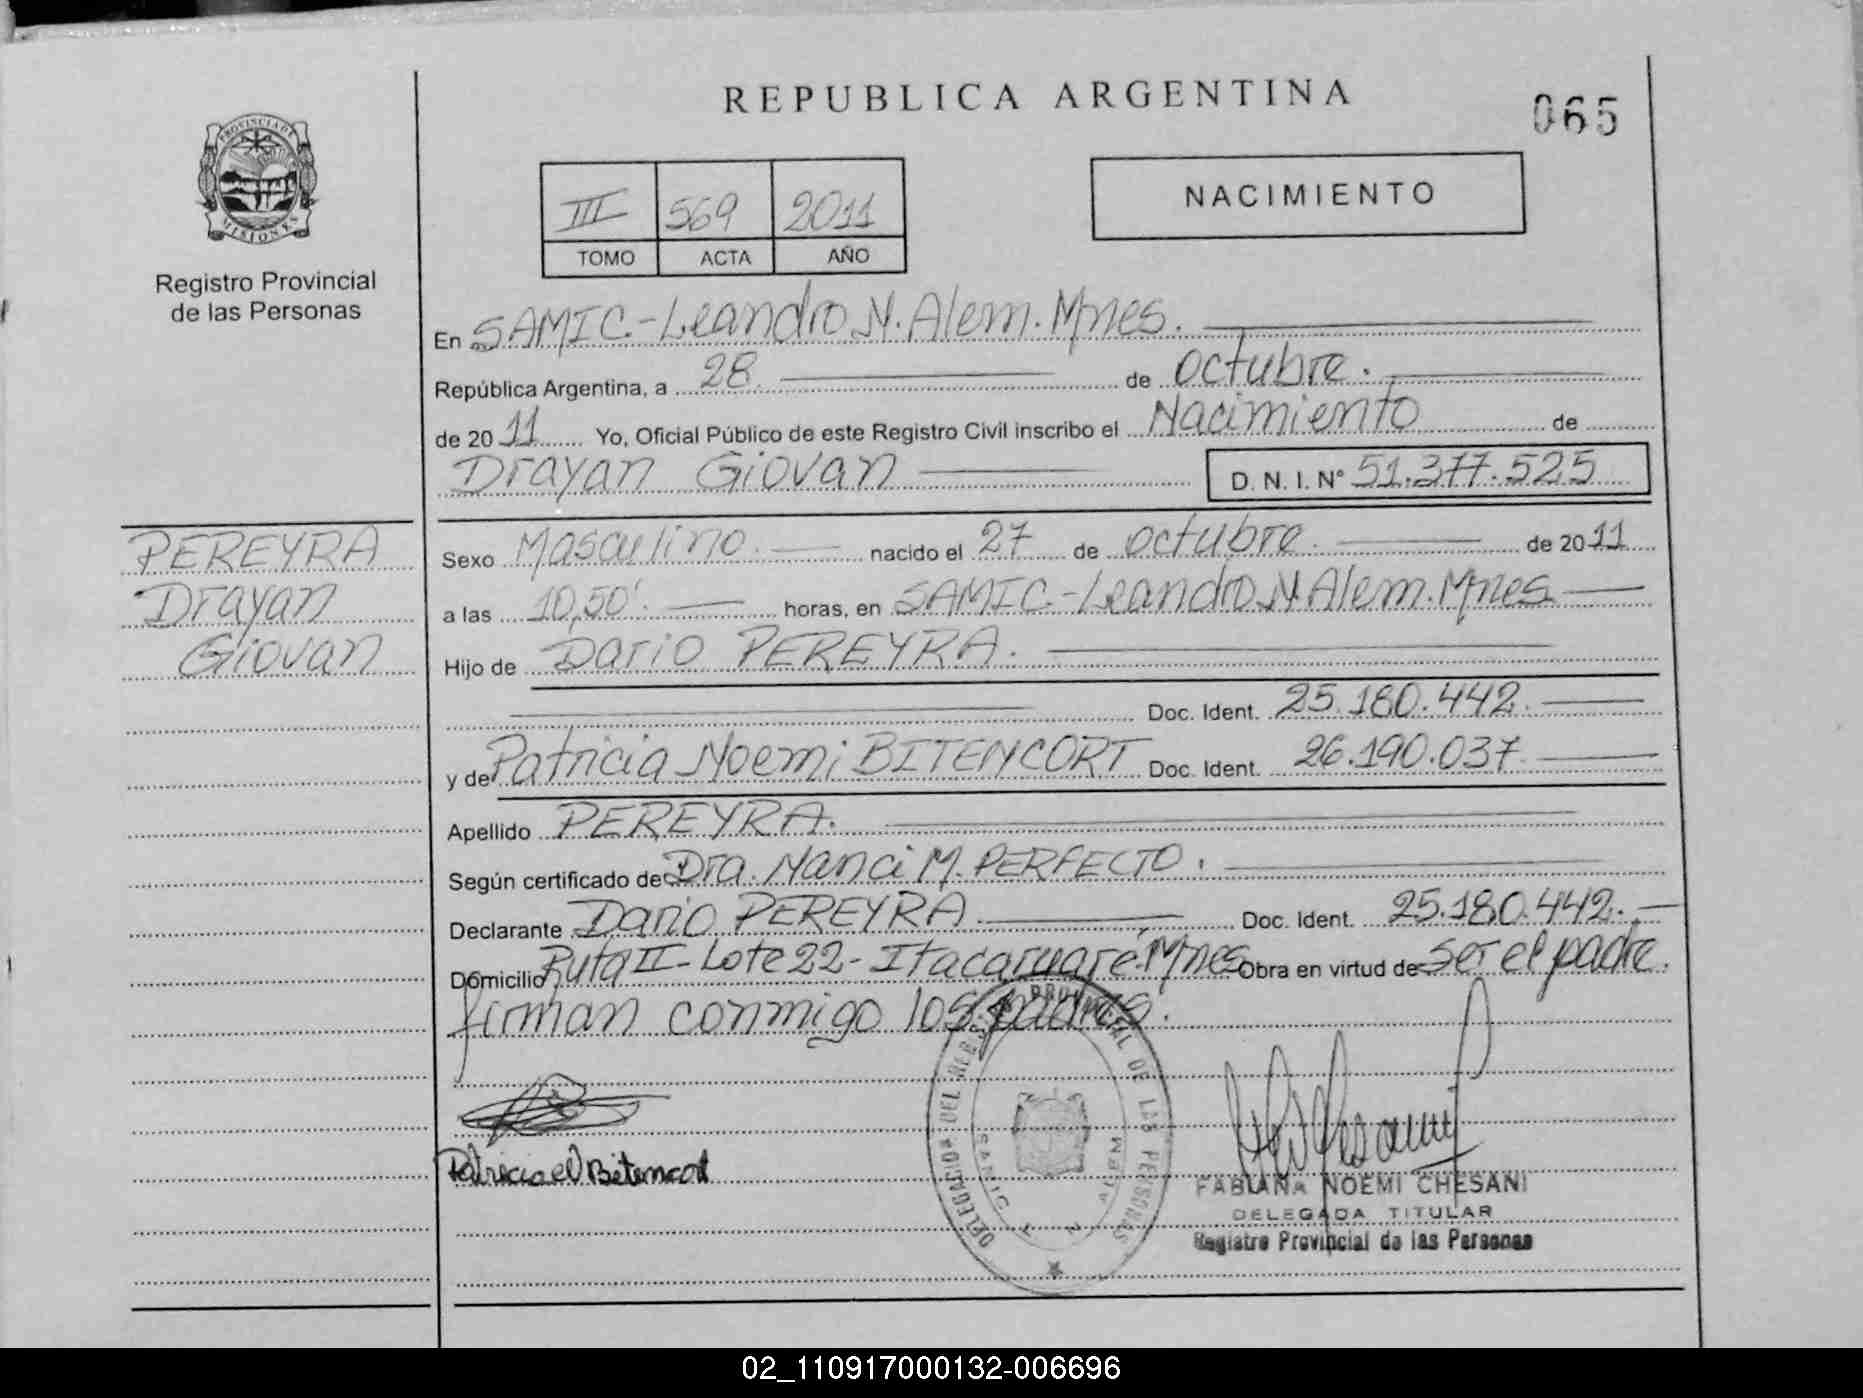 REPUBLICA ARGENTINA
065
PROVINCIA DE MISIONES
Registro Provincial
de las Personas
III 569 2011
TOMO ACTA AÑO
NACIMIENTO
En SAMIC.-Leandro N. Alem. Mnes.
República Argentina, a 28. de octubre.
de 2011 Yo, Oficial Público de este Registro Civil inscribo el Nacimiento de
Drayan Giovan D. N. I. Nº 51.377.525
PEREYRA
Drayan
Giovan
Sexo Masculino. nacido el 27 de octubre. de 2011
a las 10,50'. horas, en SAMIC.-Leandro N Alem. Mnes
Hijo de Dario PEREYRA.
Doc. Ident. 25.180.442.
y de Patricia Noemi BITENCORT Doc. Ident. 26.190.037
Apellido PEREYRA.
Según certificado de Dra. Nanci M. PERFECTO.
Declarante Dario PEREYRA Doc. Ident. 25.180.442.
Domicilio Ruta II-Lote 22-Itacaruaré.Mnes Obra en virtud de ser el padre.
firman conmigo los padres.
DELEGACION DEL REGISTRO PROVINCIAL DE LAS PERSONAS
SAMIC L N ALEM
Patricia N Bitencort
FABIANA NOEMI CHESANI
DELEGADA TITULAR
Registro Provincial de las Personas
02_110917000132-006696